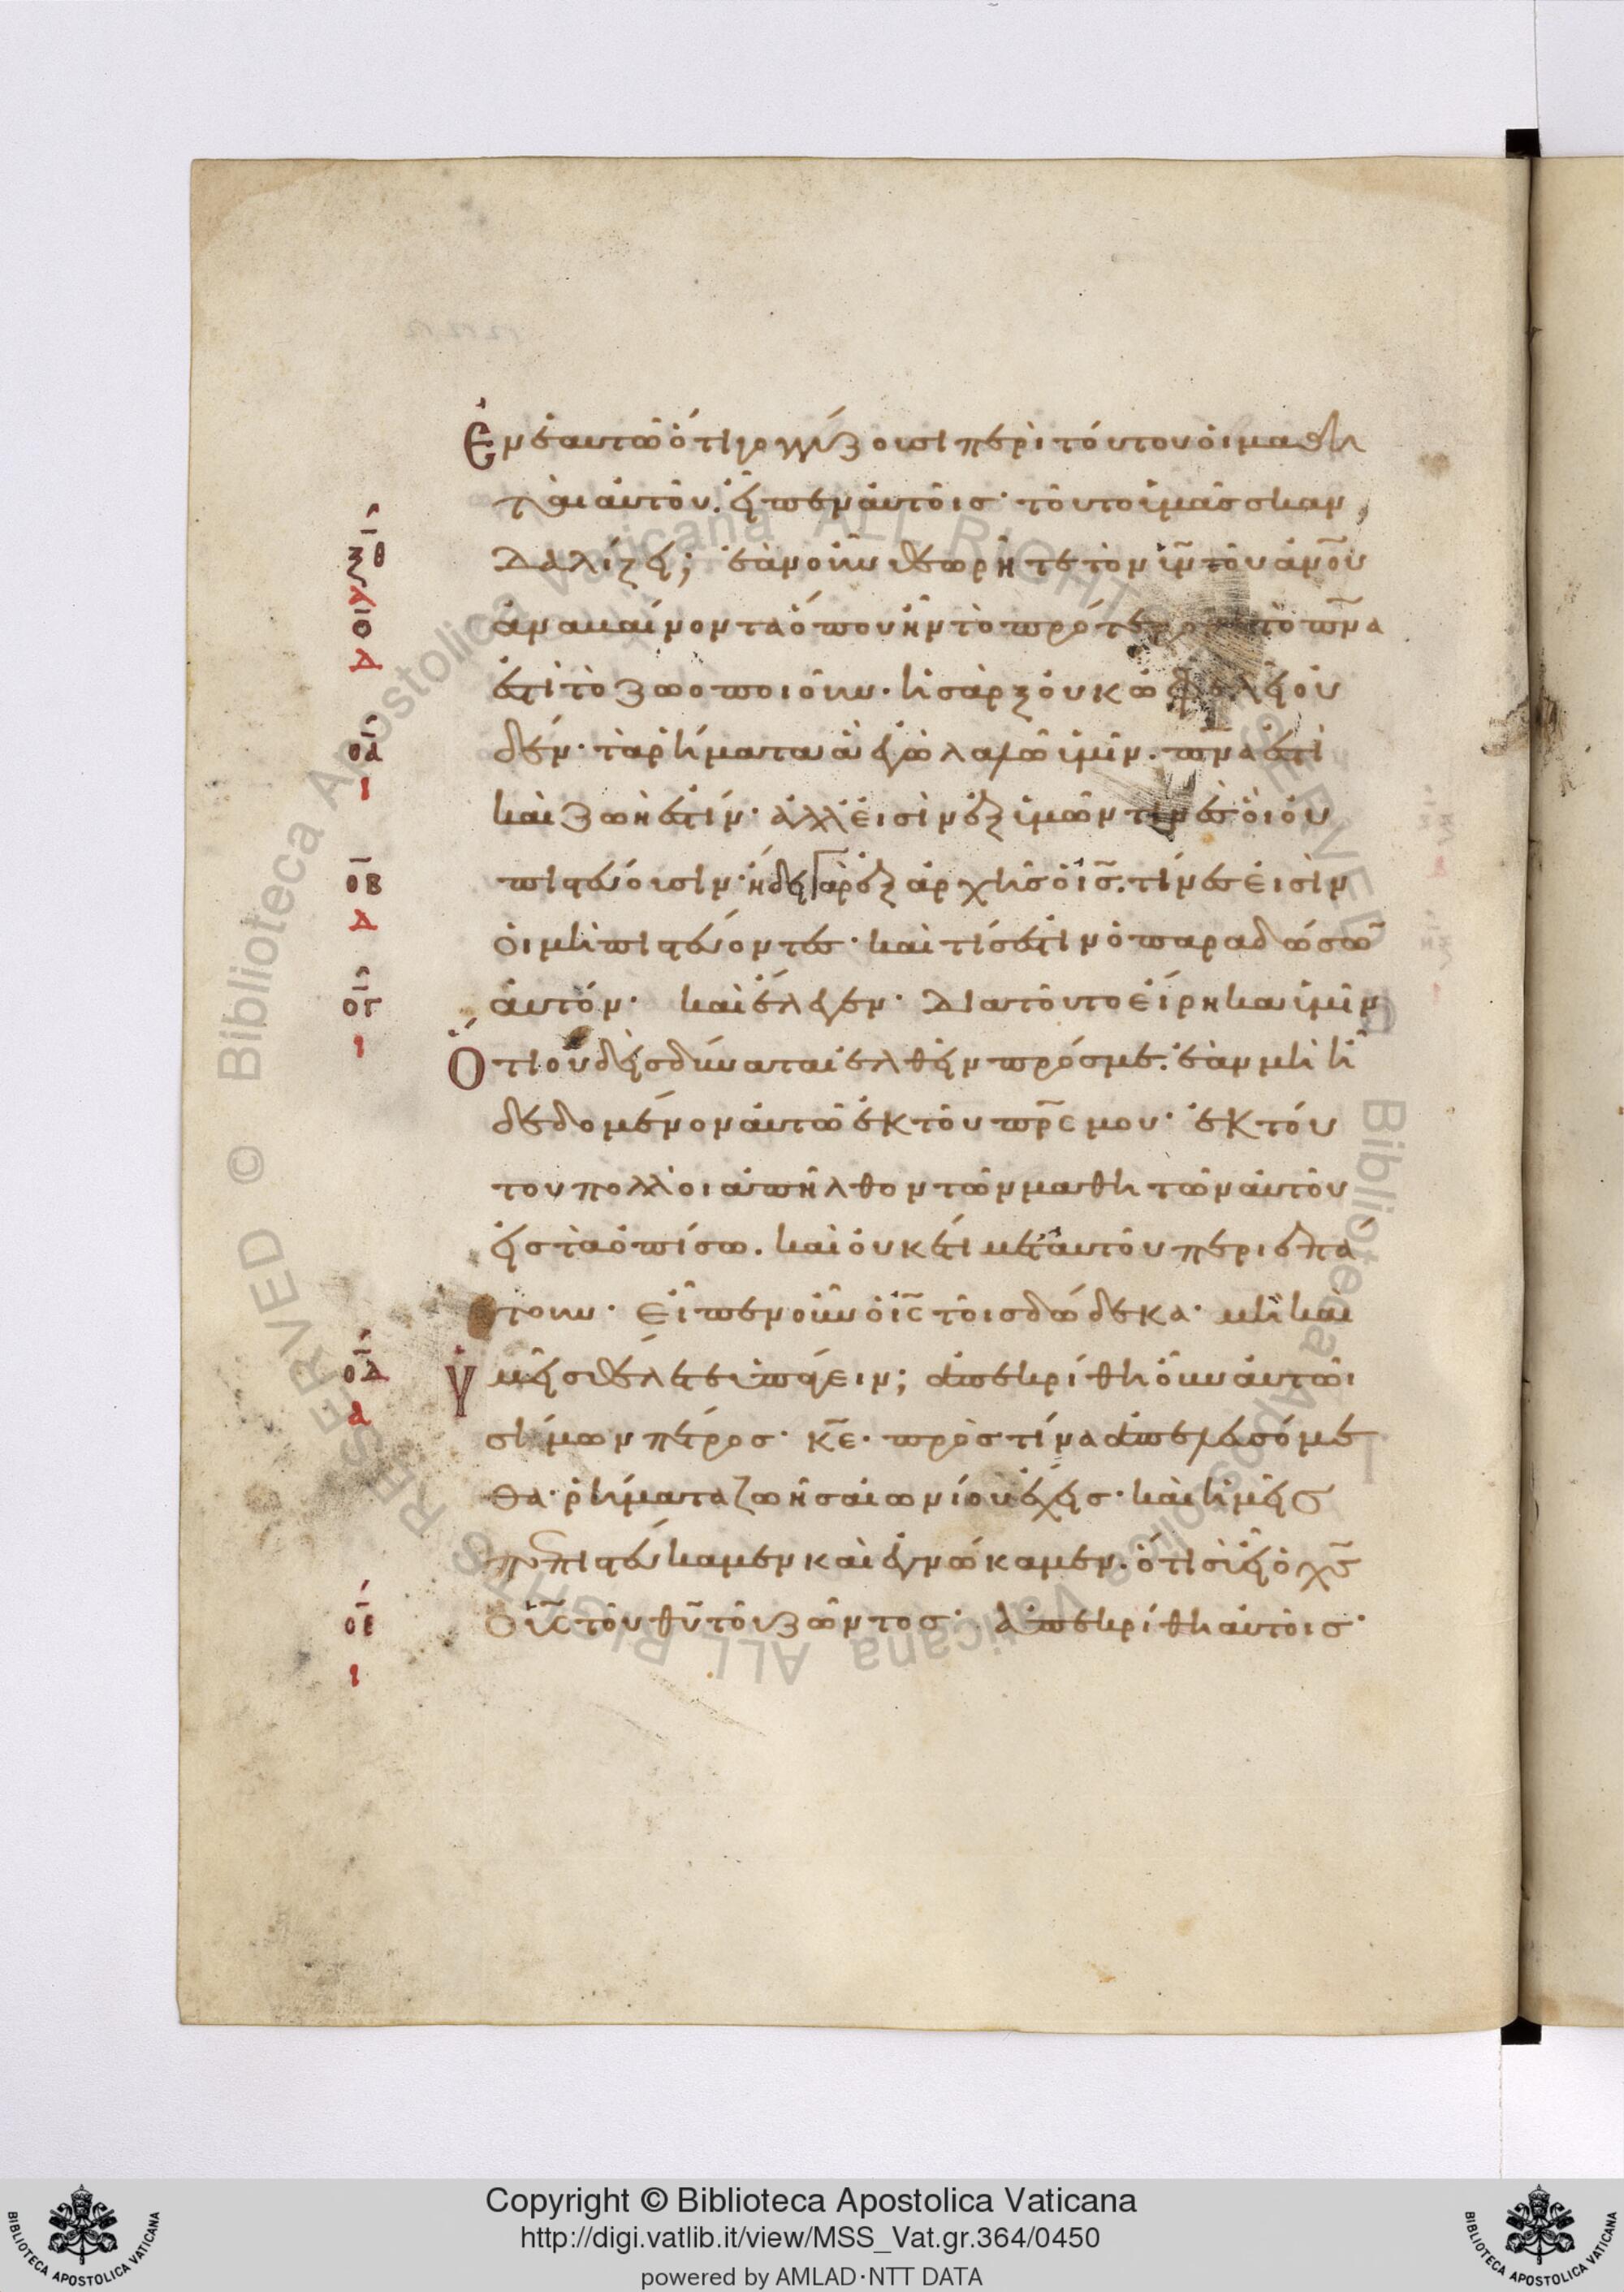 Ἐν ἑαυτῶ ὅτι γογγύζουσι περὶ τούτου οἱ μαθη
ταὶ αὐτοῦ. εἶπεν αὐτοῖς· τοῦτο ὑμᾶς σκαν
ξθ
δαλίζει; ἐὰν οὖν θεωρῆτε τὸν υν τοῦ ανου
ἀναβαίνοντα ὅπου ἦν τὸ πρότερον τὸ πνα
Δ
ἐστὶ τὸ ζωοποιοῦν. ἡ σὰρξ οὐκ ὠφελεῖ οὐ
οα
δέν· τὰ ῥήματα ἃ ἐγὼ λαλῶ ὑμῖν. πνα ἐστὶ
ι
καὶ ζωή ἐστιν· ἀλλ' εἰσὶν ἐξ ὑμῶν τινὲς οἳ οὐ
οβ
πιστεύουσιν· ἤδει γὰρ ἐξ ἀρχῆς ὁ ις. τίνες εἰσὶν
Δ
οἱ μὴ πιστεύοντες· καὶ τίς ἐστιν ὁ παραδώσων
ογ
αὐτόν· καὶ ἔλεγεν· Διὰ τοῦτο εἴρηκα ὑμῖν
ι
Ὅτι οὐδεὶς δύναται ἐλθεῖν πρός με. ἐὰν μὴ ἦ
δεδομένον αὐτῶ ἐκ τοῦ πρς μου· ἐκ τού
του πολλοὶ ἀπῆλθον τῶν μαθητῶν αὐτοῦ
εἰς τὰ ὀπίσω. καὶ οὐκέτι μετ' αὐτοῦ περιεπά
τουν· Εἶπεν οὖν ὁ ις τοῖς δώδεκα· μὴ καὶ
οδ
Ὑμεῖς θέλετε ὑπάγειν; ἀπεκρίθη οὖν αὐτῶι
α
σίμων πέτρος· κε· πρὸς τίνα ἀπελευσόμε
θα· ῥήματα ζωῆς αἰωνίου ἔχεις· καὶ ἡμεῖς
πεπιστεύκαμεν καὶ ἐγνώκαμεν. ὅτι σὺ εἶ ὁ χς
οε
ὁ υς τοῦ θυ τοῦ ζῶντος· ἀπεκρίθη αὐτοῖς·
ι
Copyright © Biblioteca Apostolica Vaticana
http://digi.vatlib.it/view/MSS_Vat.gr.364/0450
powered by AMLAD·NTT DATA
BIBLIOTECA APOSTOLICA VATICANA
BIBLIOTECA APOSTOLICA VATICANA
© Biblioteca Apostolica Vaticana ALL RIGHTS RESERVED
© Biblioteca Apostolica Vaticana ALL RIGHTS RESERVED